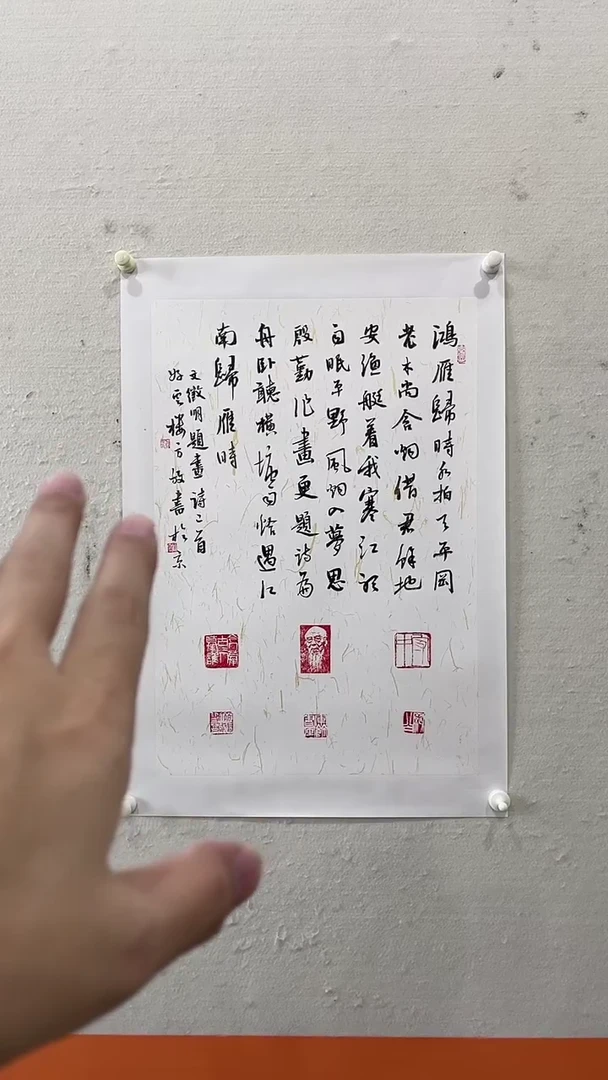 鴻雁歸時水拍天平岡
老木尚含烟借君餘地
安漁艇着我寒江
眠平野風烟入夢思
殷勤作畫更題詩扁
舟卧聽橫塘雨恰遇江
南歸雁時
文徵明題畫詩二首
樓方書於京